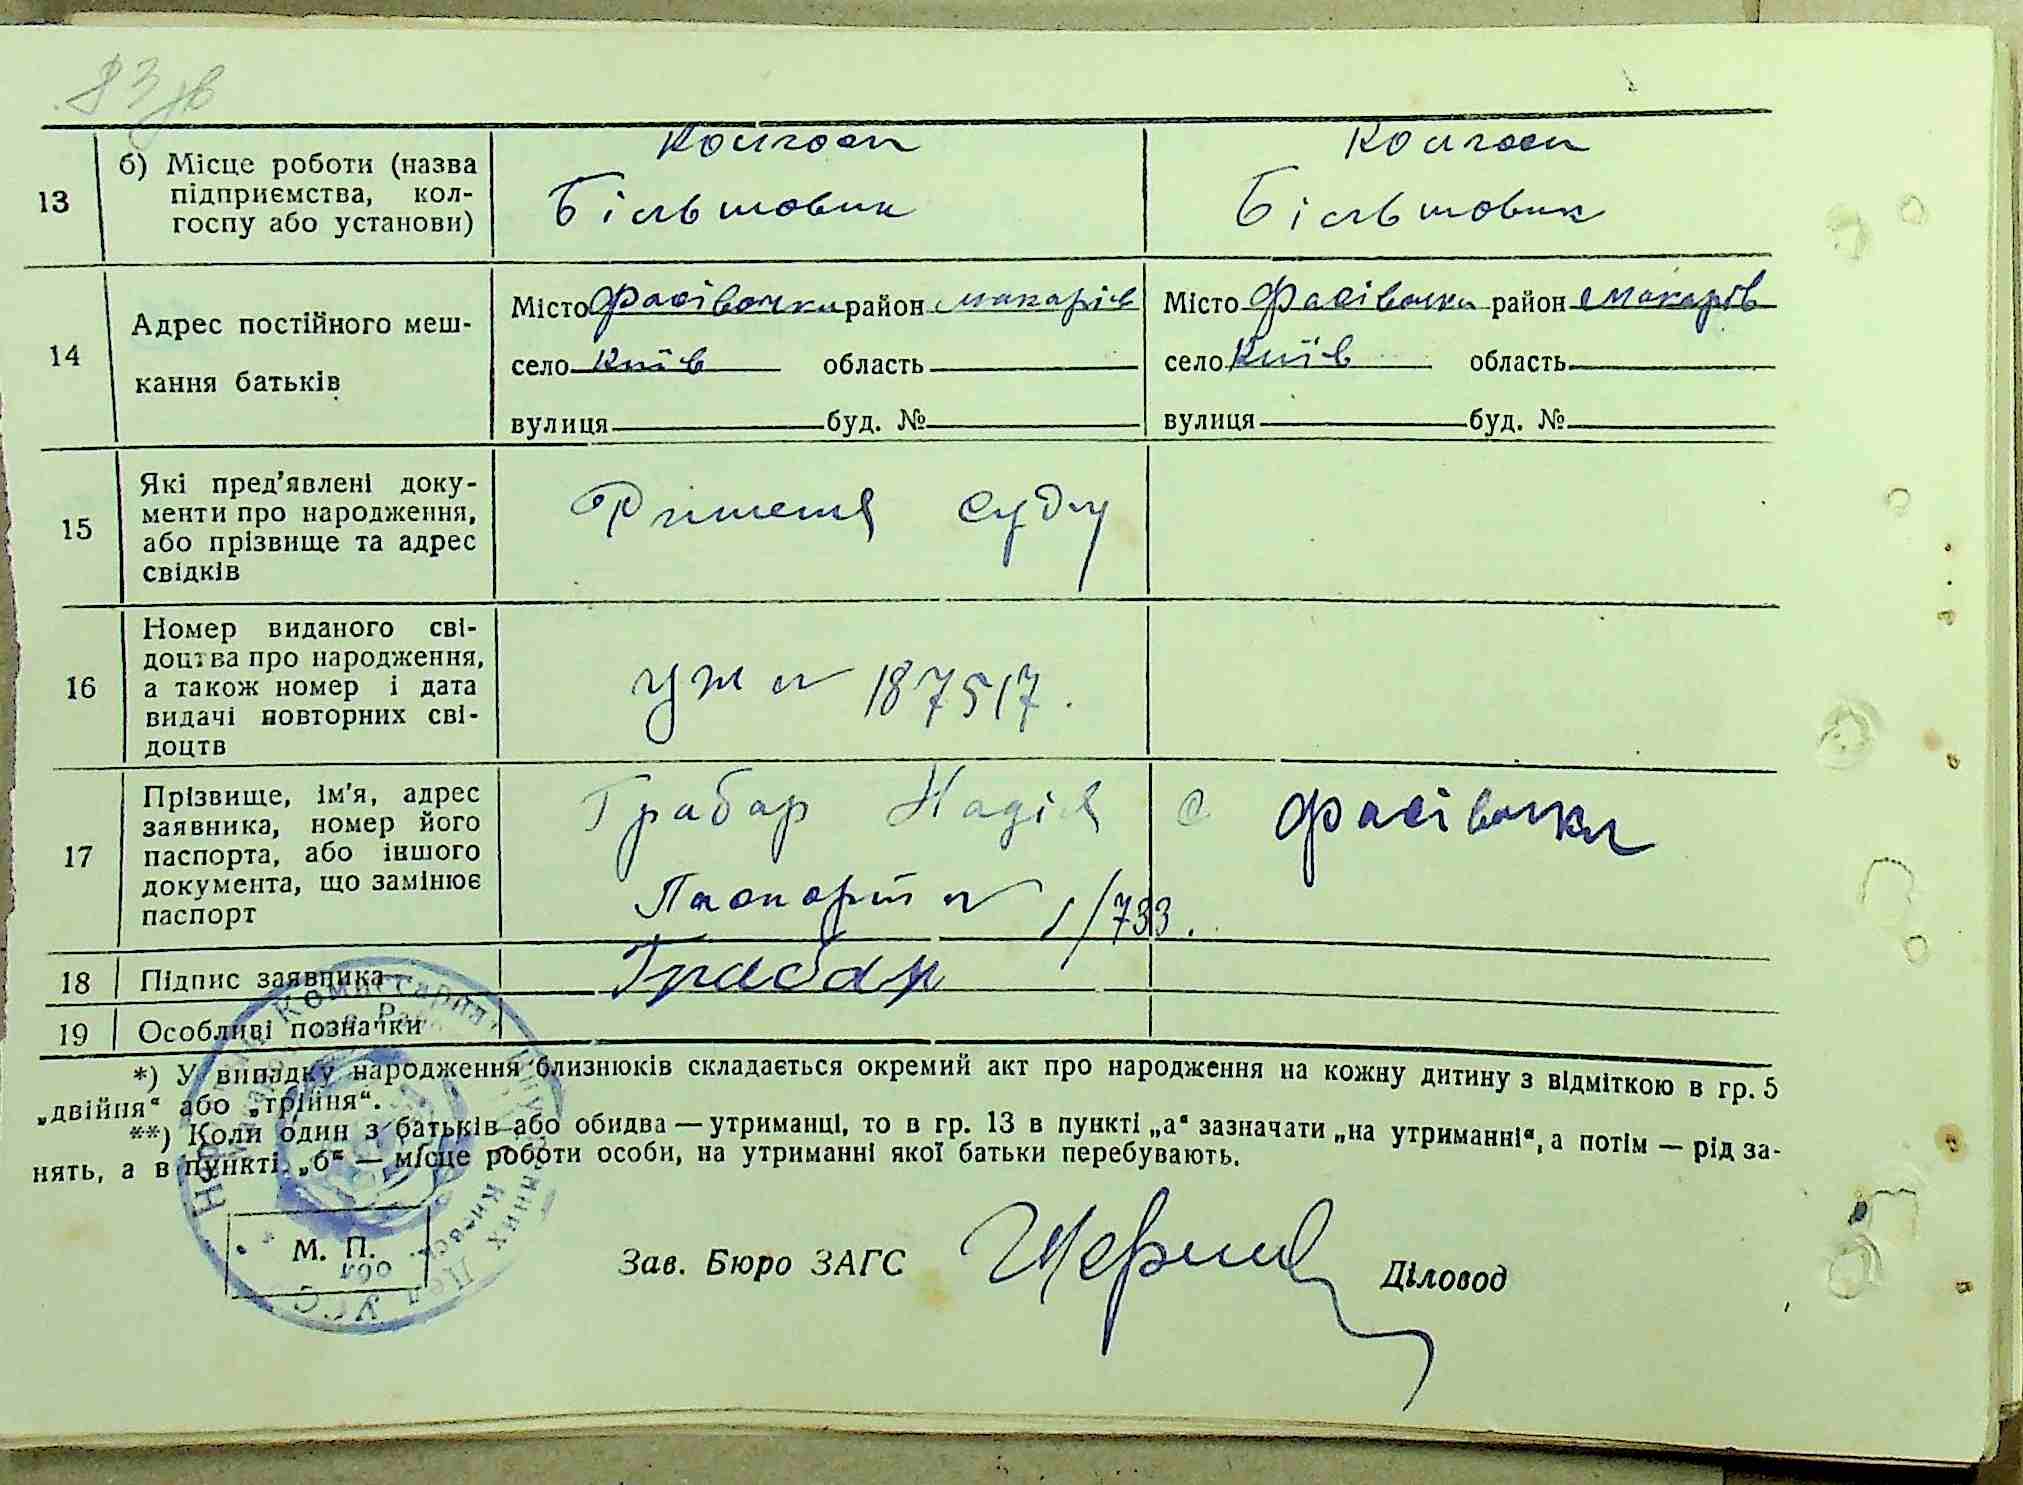 83 зв
колгосп колгосп
13 б) Місце роботи (назва підприємства, кол-госпу або установи) Більшовик Більшовик
14 Адрес постійного меш-кання батьків
Місто Фасівочка район Макарів Місто Фасівочка район Макарів
село Київ область село Київ область
вулиця буд. № вулиця буд. №
15 Які пред'явлені доку-
менти про народження,
або прізвище та адрес
свідків
Рішення суду
16 Номер виданого сві-
доцтва про народження,
а також номер і дата
видачі повторних сві-
доцтв
УЖ № 187517.
17 Прізвище, ім'я, адрес
заявника, номер його
паспорта, або іншого
документа, що замінює
паспорт
Грабар Надія с Фасівочка
Паспорт № 1/733.
18 Підпис заявника Грабар
19 Особливі позначки
*) У випадку народження близнюків складається окремий акт про народження на кожну дитину з відміткою в гр. 5
„двійня“ або „трійня“.
**) Коли один з батьків або обидва — утриманці, то в гр. 13 в пункті „а“ зазначати „на утриманні“, а потім — рід за-
нять, а в пункті „б“ — місце роботи особи, на утриманні якої батьки перебувають.
М. П.
Зав. Бюро ЗАГС Діловод